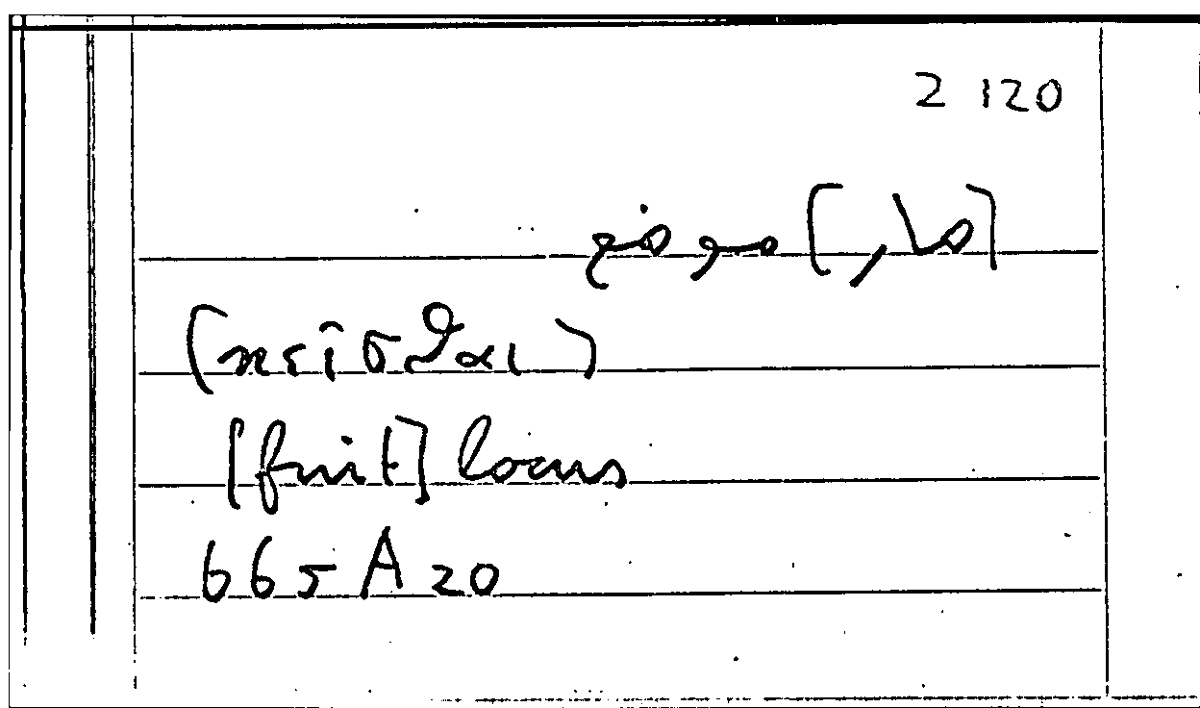 2 120
(κεῖσθαι)
[fuit] locus
665 A 20